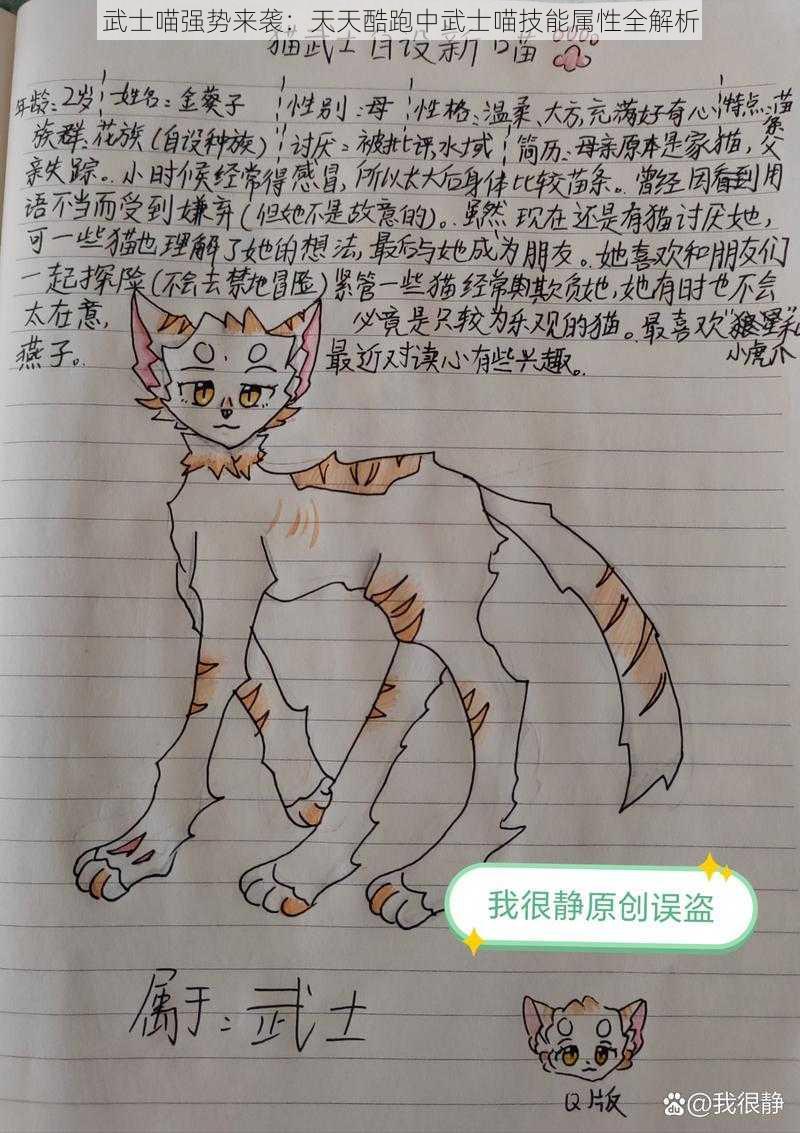 武士喵强势来袭：天天酷跑中武士喵技能属性全解析
猫武士自设新喵
年龄：2岁 姓名：金葵子 性别：母 性格：温柔、大方，充满好奇心 特点：苗条
族群：花族（自设种族） 讨厌：被批评，水域 简历：母亲原本是家猫，父
亲失踪。小时候经常得感冒，所以太大后身体比较苗条。曾经因看到用
语不当而受到嫌弃（但她不是故意的）。虽然现在还是有猫讨厌她，
可一些猫也理解了她的想法，最后与她成为朋友。她喜欢和朋友们
一起探险（不会去禁地冒险）紧管一些猫经常欺负她，她有时也不会
太在意， 必竟是只较为乐观的猫。最喜欢
燕子。 最近对读心有些兴趣。 小虎爪
我很静原创误盗
属于：武士
Q版
@我很静